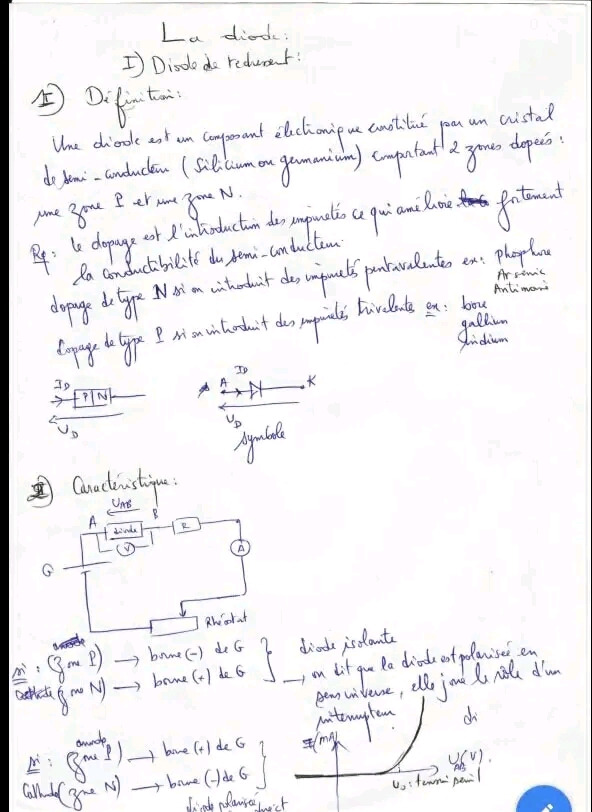 La diode:
I) Diode de redressent:
I) Définition:
Une diode est un composant électronique constitué par un cristal
de semi-conducteur (Silicium ou germanium) comportant 2 zones dopées:
une zone P et une zone N.
Rq: le dopage est l'introduction des impuretés ce qui améliore fortement
la conductibilité du semi-conducteur.
dopage de type N si on introduit des impuretés pentavalentes ex: phosphore
Arsenic
Antimoine
dopage de type P si on introduit des impuretés trivalents ex: bore
gallium
indium
ID
P N
UD
ID
A K
UD
symbole
II) Caractéristique:
UAB
A diode B R
V
A
G
Rhéostat
si: (zone P) → borne (-) de G
Cathode (zone N) → borne (+) de G
diode isolante
→ on dit que la diode est polarisée en
sens inverse, elle joue le rôle d'un
interrupteur
di
I(mA)
UAB(V)
U0: tension seuil
anode
si: (zone P) → borne (+) de G
Cathode (zone N) → borne (-) de G
diode polarisée